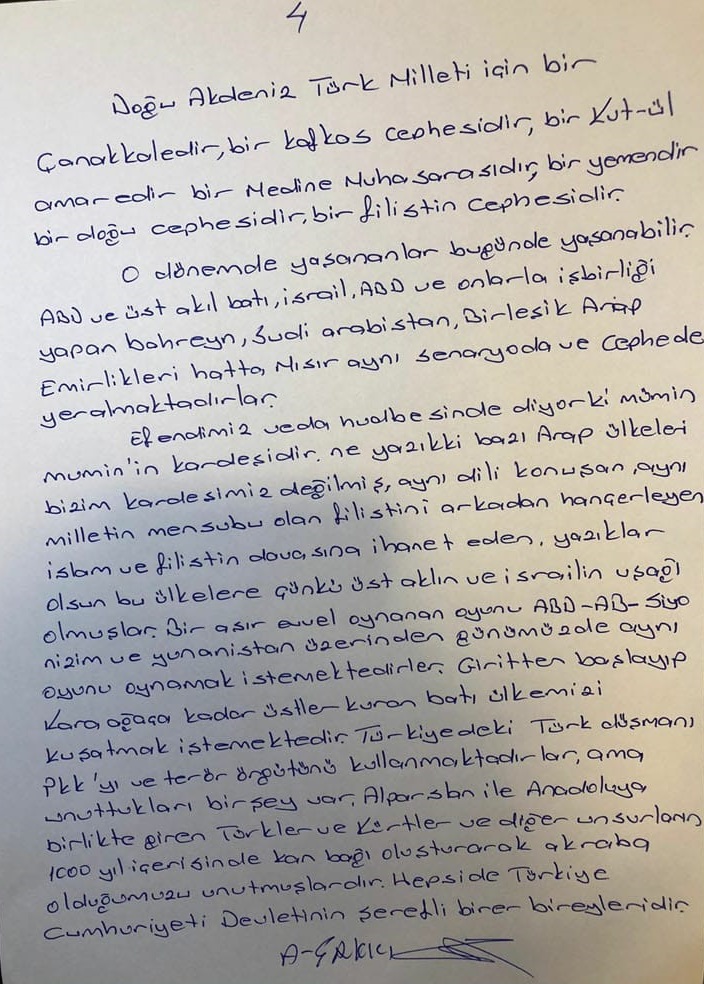 4
Doğu Akdeniz Türk Milleti için bir
Çanakkaledir, bir kafkas cephesidir, bir Kut-ül
amaredir bir Medine Muhasarasıdır, bir yemendir
bir doğu cephesidir, bir filistin Cephesidir.
O dönemde yaşananlar bugünde yaşanabilir.
ABD ve üst akıl batı, israil, ABD ve onlarla işbirliği
yapan bahreyn, Sudi arabistan, Birleşik Arap
Emirlikleri hatta, Mısır aynı senaryoda ve Cephede
yeralmaktadırlar.
Efendimiz veda hudbesinde diyorki mümin
mumin'in kardeşidir. ne yazıkki bazı Arap ülkeleri
bizim kardeşimiz değilmiş, aynı dili konuşan, aynı
milletin mensubu olan filistini arkadan hançerleyen
islam ve filistin davasına ihanet eden, yazıklar
olsun bu ülkelere çünkü üst aklın ve israilin uşağı
olmuşlar. Bir asır evvel oynanan oyunu ABD-AB-Siyo
nizim ve yunanistan üzerinden günümüzde aynı
oyunu oynamak istemektedirler. Giritten başlayıp
Karaağaça kadar üstler kuran batı ülkemizi
kuşatmak istemektedir. Türkiyedeki Türk düşmanı
Pkk'yı ve terör örgütünü kullanmaktadırlar, ama
unuttukları birşey var, Alparslan ile Anadoluya
birlikte giren Türkler ve Kürtler ve diğer unsurların
1000 yıl içerisinde kan bağı oluşturarak akraba
olduğumuzu unutmuşlardır. Hepside Türkiye
Cumhuriyeti Devletinin şerefli birer bireyleridir.
A-ÇAKICI